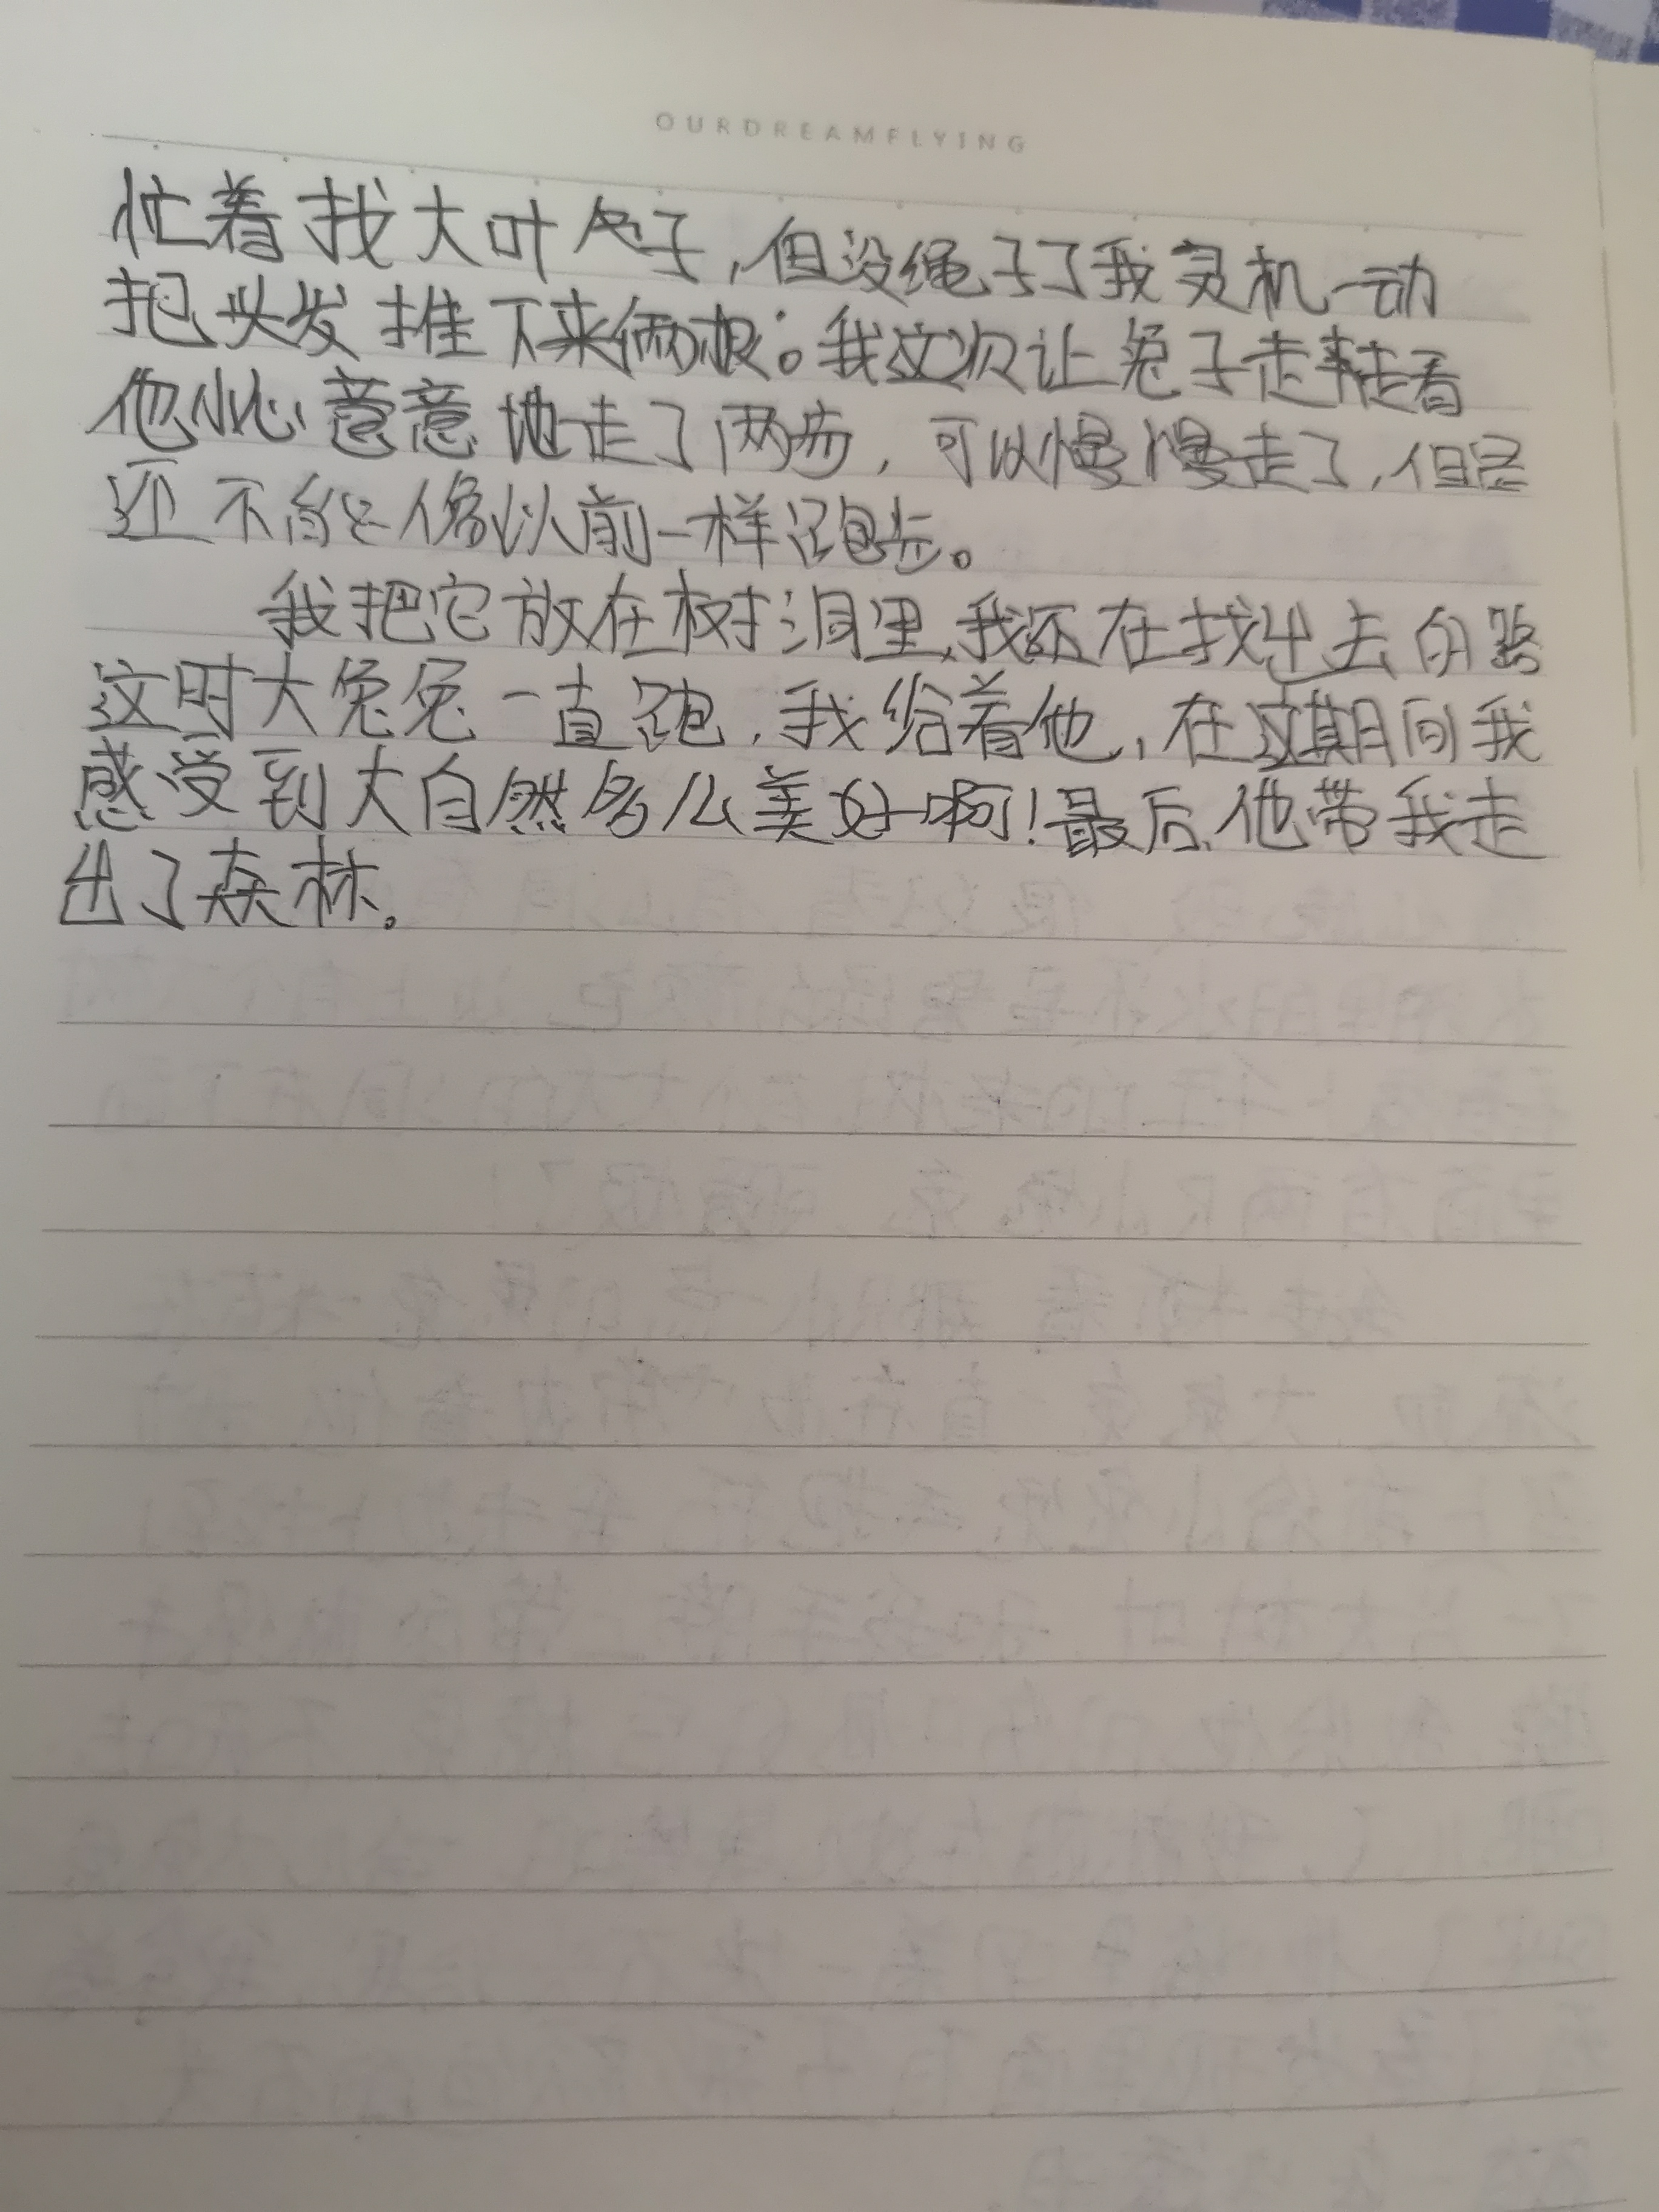 OURDREAMFLYING
忙着找大叶子,但没绳子了我灵机一动
把头发推下来俩根。我这次让兔子走走看
他小心意意地走了两步,可以慢慢走了,但是
还不能像以前一样跑步。
我把它放在树洞里,我还在找出去的路
这时大兔兔一直跑,我给着他,在这期间我
感受到大自然多么美好啊!最后,他带我走
出了森林。